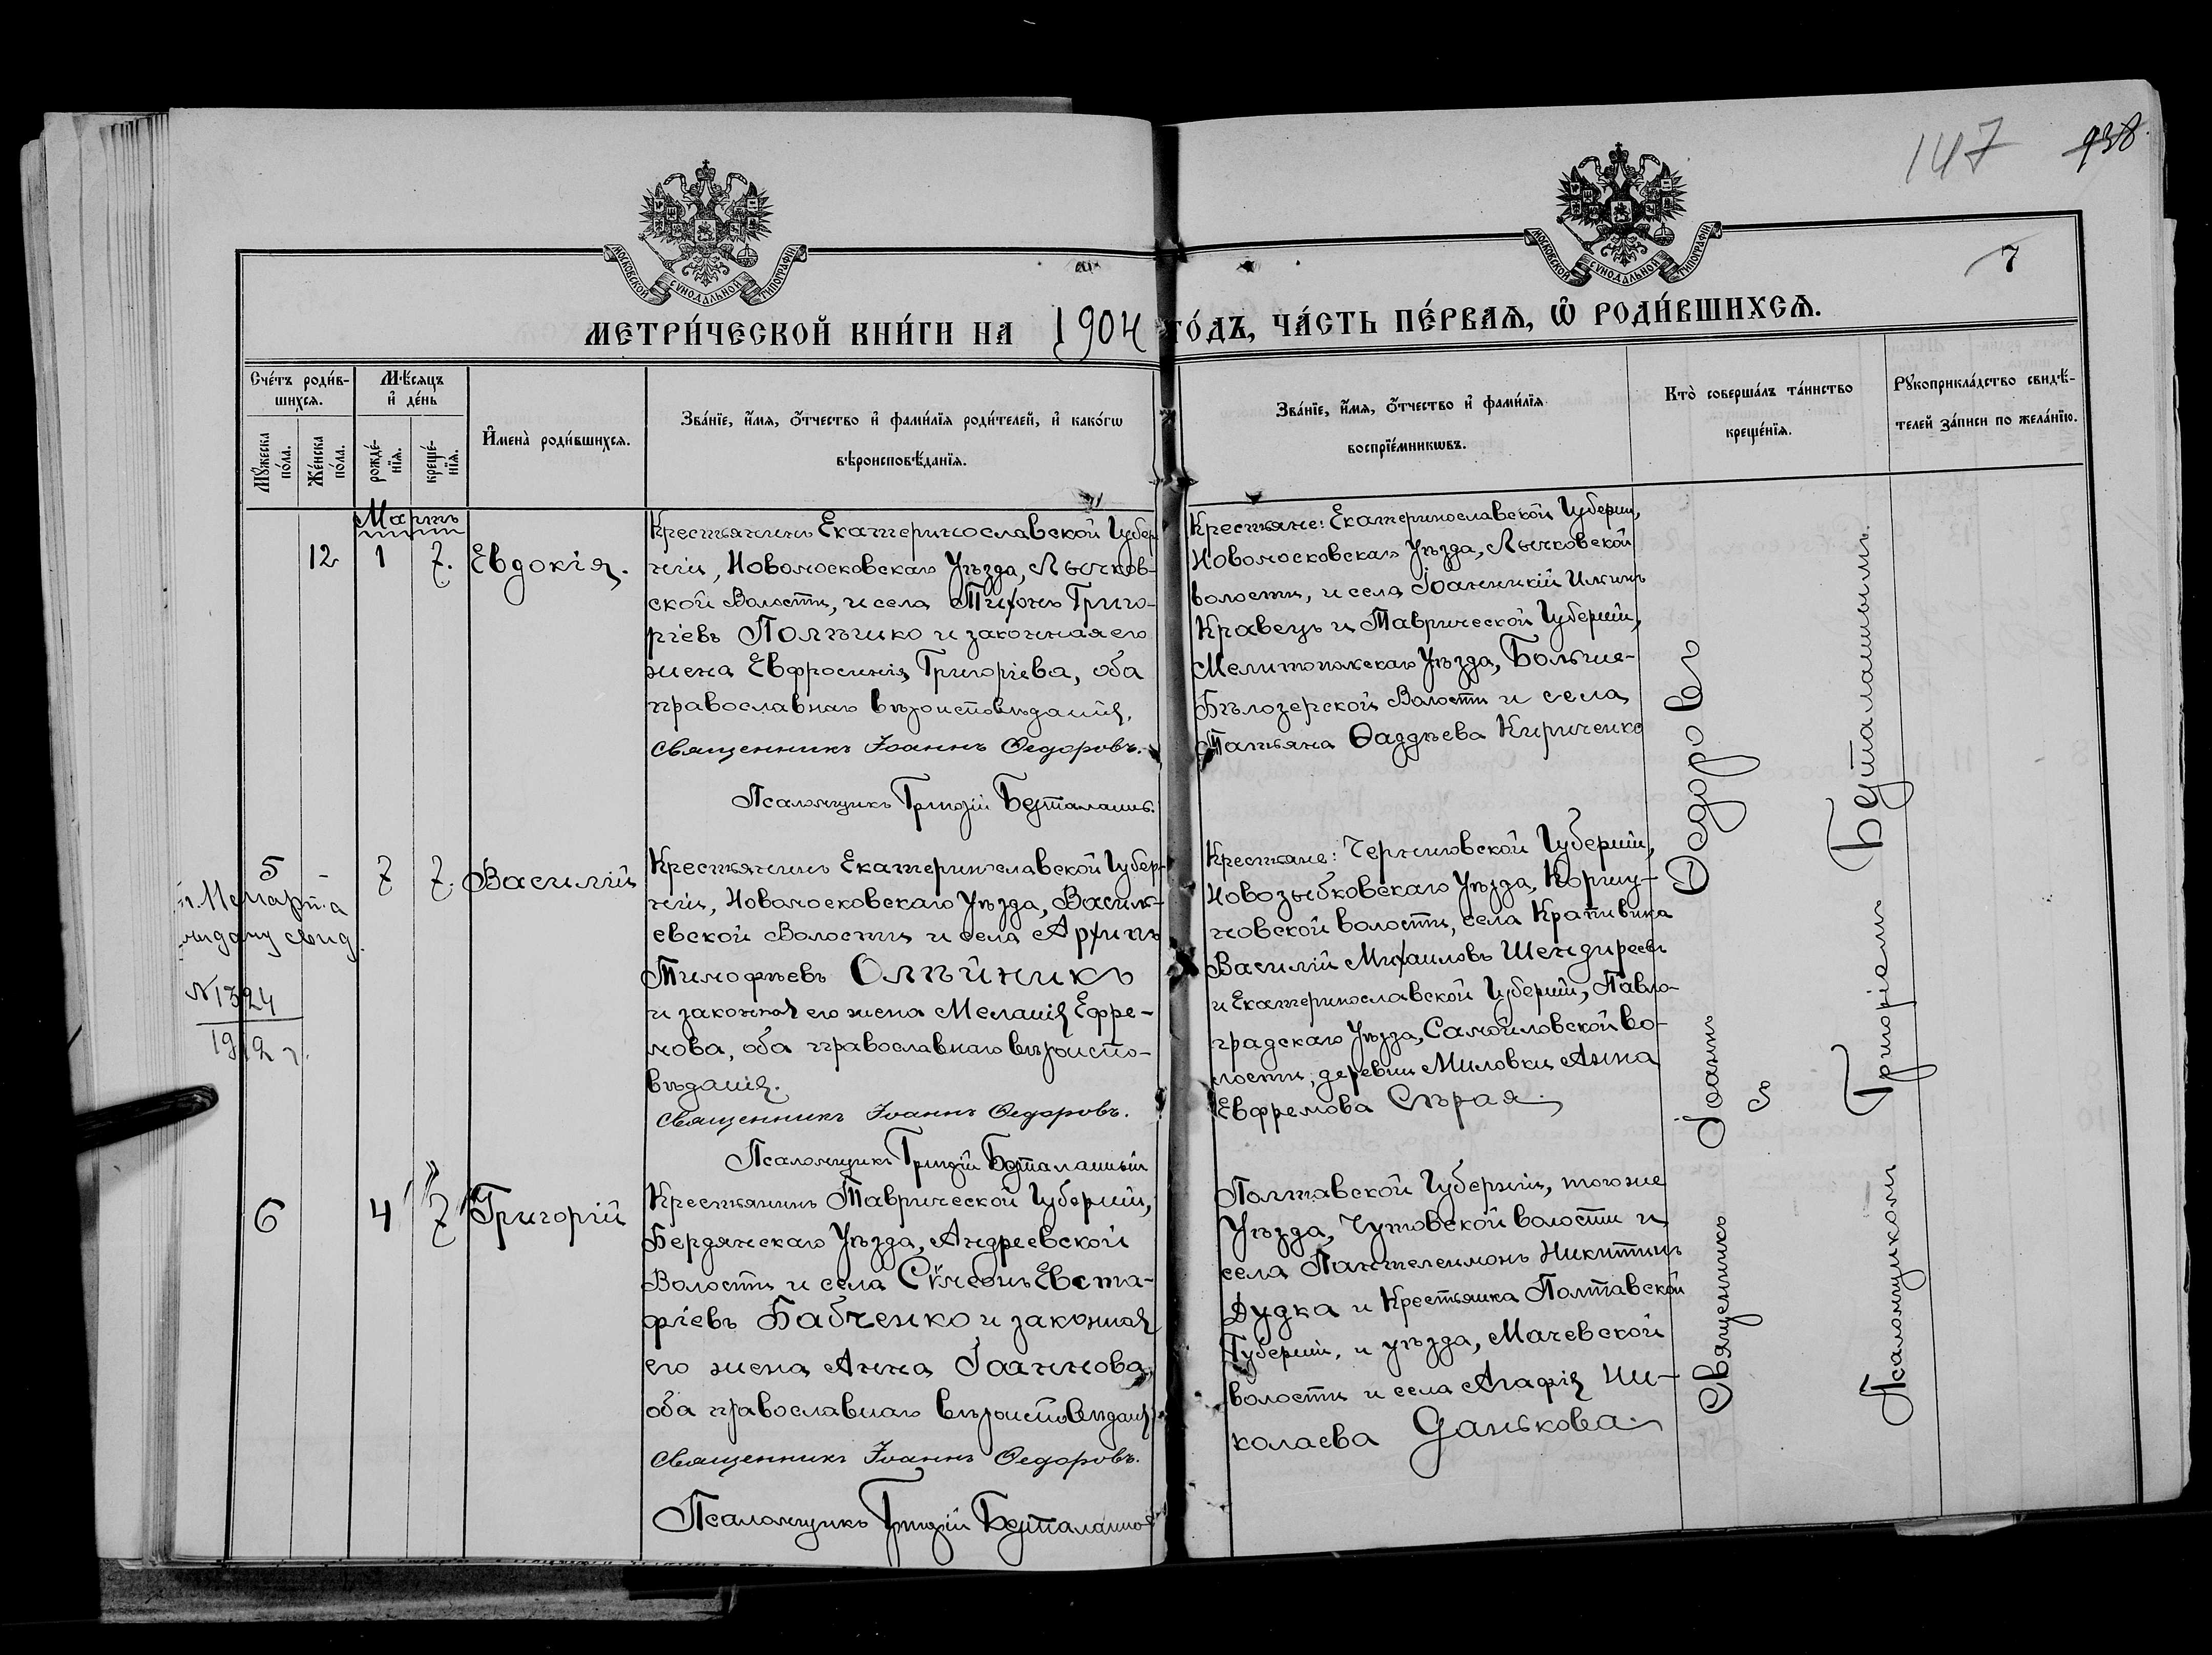 147 938
7
МОСКОВСКОЙ СѴНОДАЛЬНОЙ ТИПОГРАФІИ
МОСКОВСКОЙ СѴНОДАЛЬНОЙ ТИПОГРАФІИ
МЕТРИ́ЧЕСКОЙ КНИ́ГИ НА 1904 ГО́ДЪ, ЧА́СТЬ ПЕ́РВАѦ, Ѡ҆ РОДИ́ВШИХСѦ.
Сче́тъ роди́в-
шихсѧ.
Мꙋ́жеска по́ла.
Же́нска по́ла.
Мѣ́сѧцъ
и҆ де́нь
рожде́-
нїѧ.
креще́-
нїѧ.
И҆мена̀ роди́вшихсѧ.
Зва́нїе, и҆́мѧ, ѻ҆́тчество и҆ фами́лїѧ роди́телей, и҆ како́гѡ
вѣроисповѣ́данїѧ.
Зва́нїе, и҆́мѧ, ѻ҆́тчество и҆ фами́лїѧ
воспрїе́мникѡвъ.
Кто̀ соверша́лъ та́инство
креще́нїѧ.
Рꙋкоприкла́дство свидѣ́-
телей за́писи по жела́нїю.
Мартъ
12 1 7. Евдокія.
Крестьянинъ Екатеринославской Губер
ніи, Новомосковскаго Уѣзда, Лычков-
ской Волости, и села Тихонъ Григо-
ріевъ Полѣшко и законная его
жена Евфросинія Григоріева, оба
православнаго вѣроисповѣданія.
Священникъ Іоаннъ Ѳедоровъ.
Псаломщикъ Григорій Безталанн.
Крестьяне: Екатеринославской Губерніи,
Новомосковскаго Уѣзда, Лычковской
волости, и села Іоанникій Илиинъ
Кравецъ и Таврической Губерніи,
Мелитопольскаго Уѣзда, Больше-
Бѣлозерской Волости и села
Татьяна Ѳаддѣева Кириченко
5 7 7. Василій
выдану свид.
N1324
1912 г.
Крестьянинъ Екатеринославской Губер-
ніи, Новомосковскаго Уѣзда, Василь-
евской Волости и села Архипъ
Тимофѣевъ Олѣйникъ
и законная его жена Меланія Ефре-
мова, оба православнаго вѣроиспо-
вѣданія.
Священникъ Іоаннъ Ѳедоровъ.
Псаломщикъ Григорій Безталанный
Крестьяне: Черниговской Губерніи,
Новозыбковскаго Уѣзда,
новской волости, села
Василій Михаиловъ
и Екатеринославской Губерніи, Павло-
градскаго Уѣзда, Самойловской во-
лости, деревни Миловки Анна
Евфремова Сѣрая.
6 4 7 Григорій
Крестьянинъ Таврической Губерніи,
Бердянскаго Уѣзда, Андреевской
Волости и села Сѵмеонъ Евста-
фіевъ Бабченко и законная
его жена Анна Іоаннова,
оба православнаго вѣроисповѣданія
Священникъ Іоаннъ Ѳедоровъ.
Псаломщикъ Григорій Безталанной
Полтавской Губерніи, тогоже
Уѣзда, Чутовской волости и
села Пантелеимонъ Никитинъ
Дудка и Крестьянка Полтавской
Губерніи, и уѣзда, Мачевской
волости и села Агафія Ни-
колаева Данькова.
Священникъ Іоаннъ Ѳедоровъ
съ
Псаломщикомъ Григоріемъ Безталаннымъ.